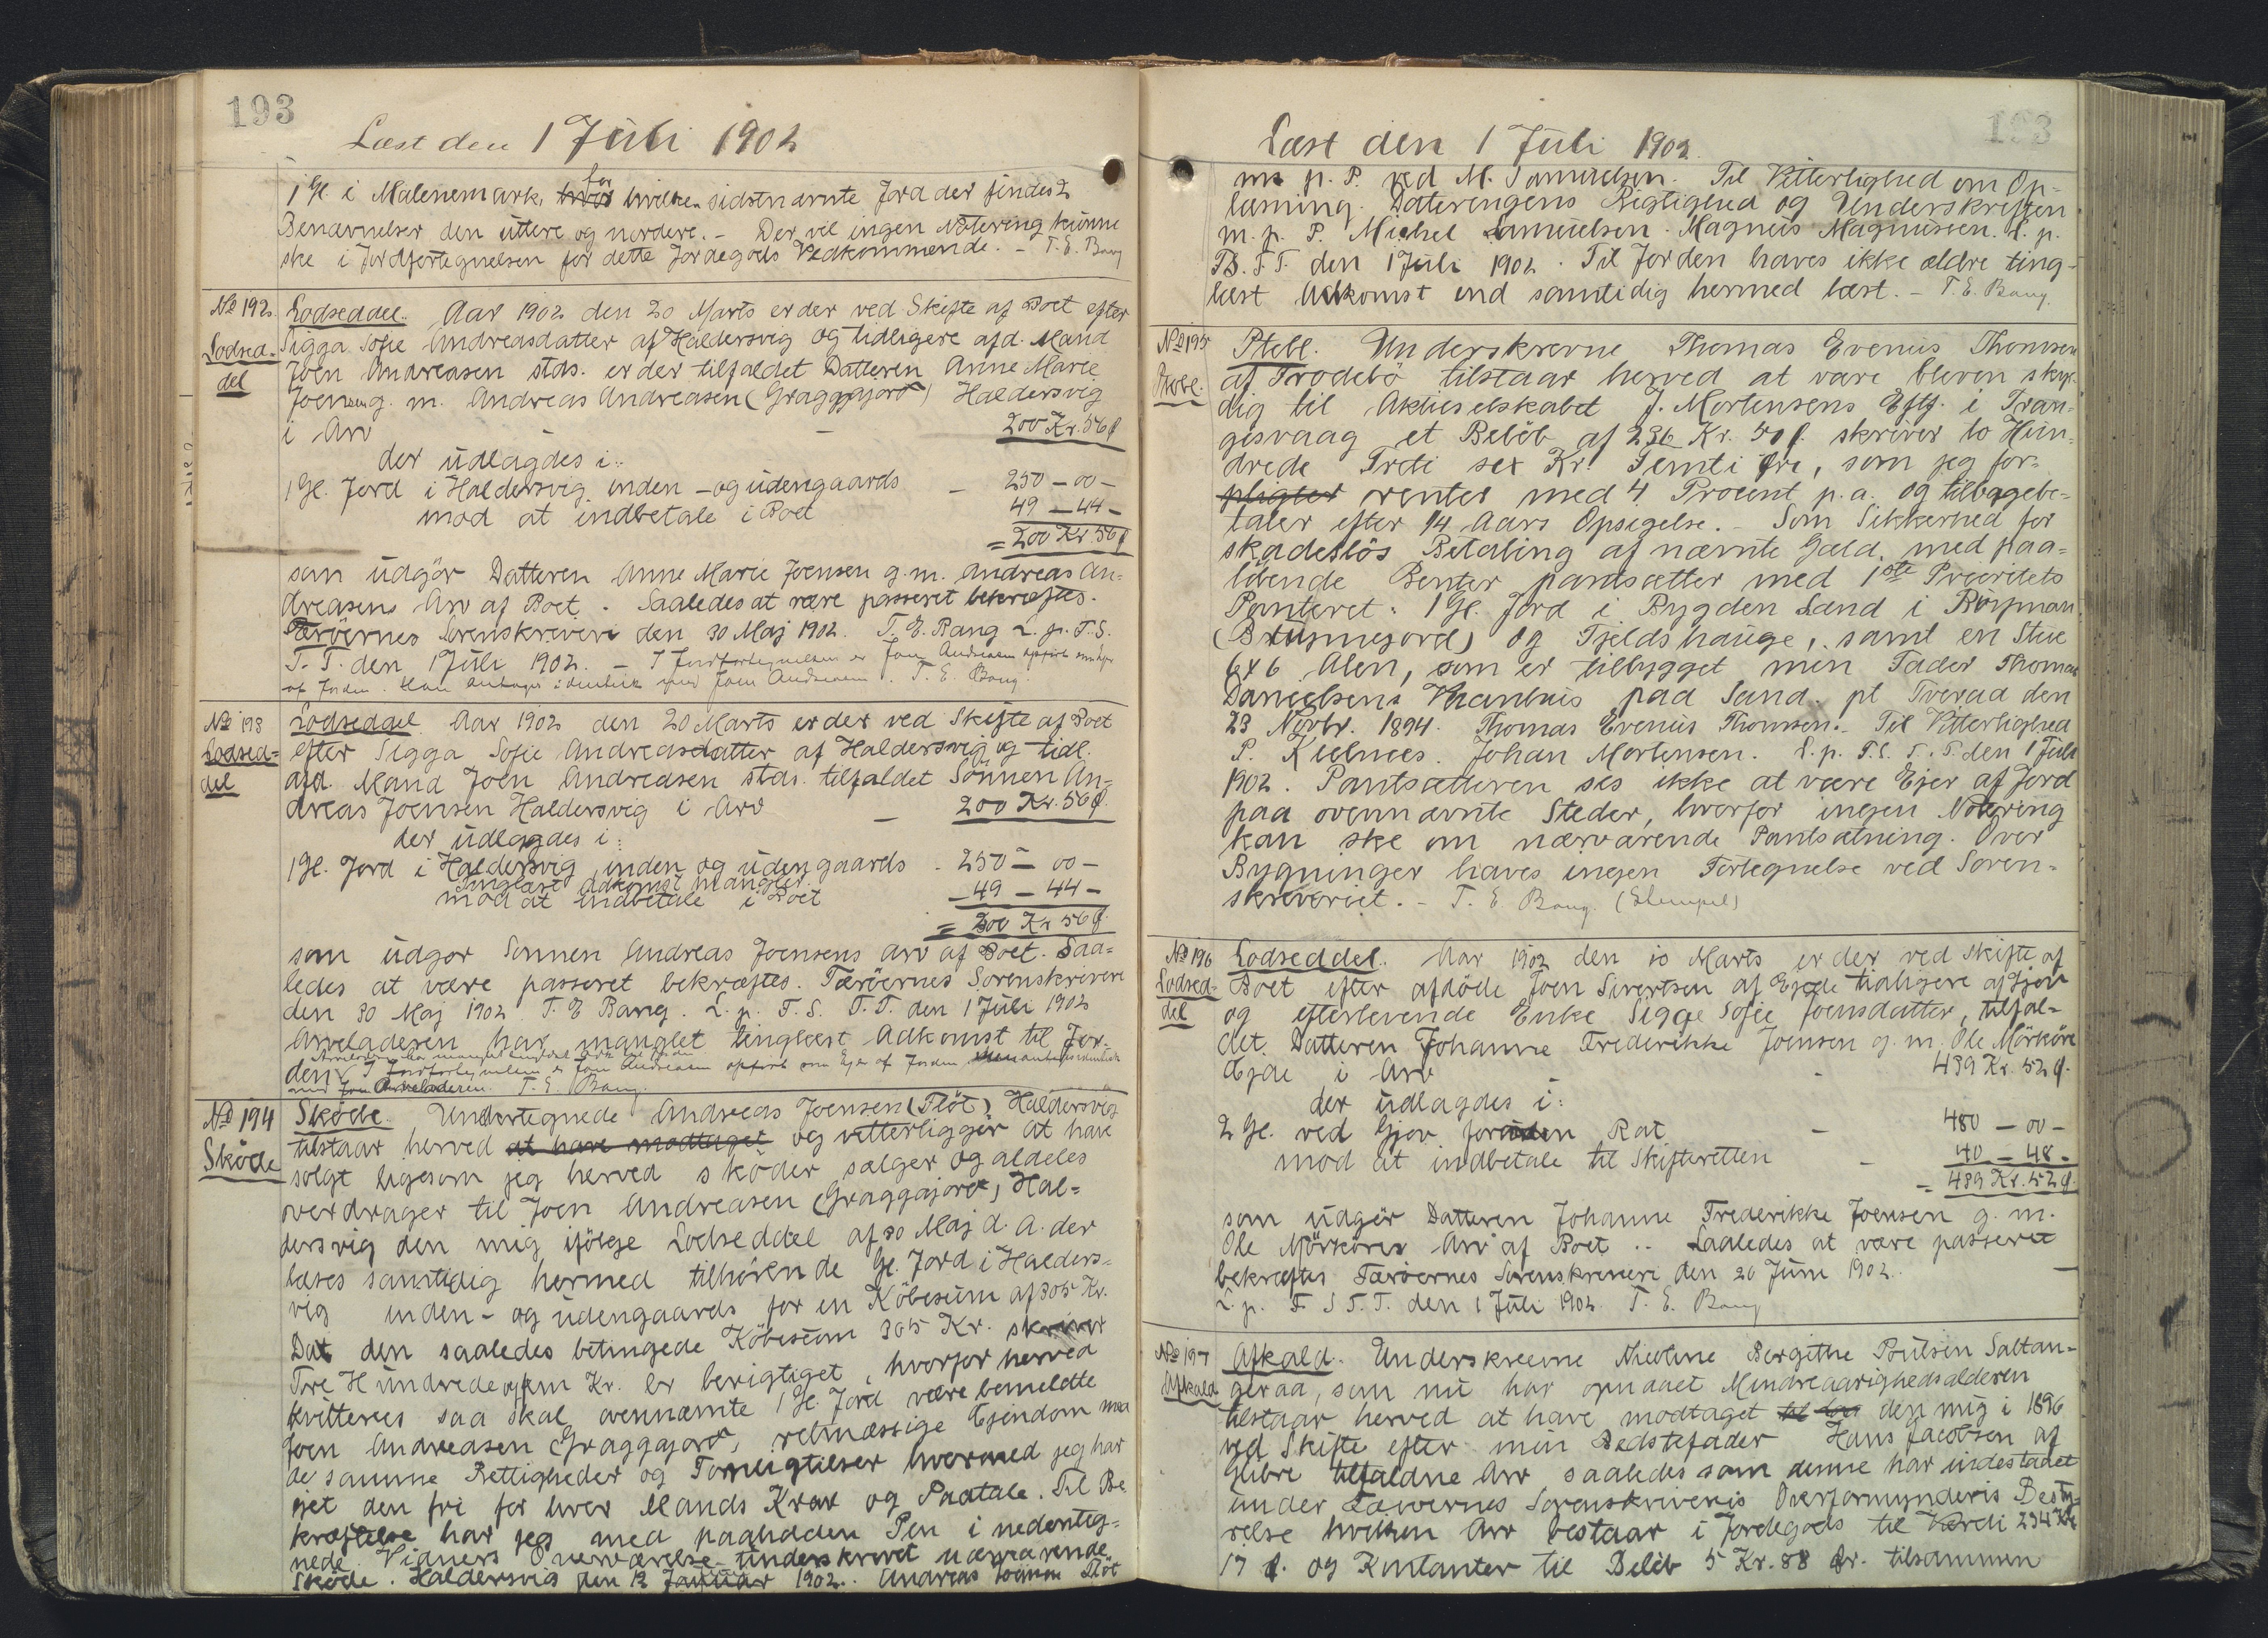 193
Læst den 1 Juli 1902
1 Gl. i Malenemark, hvor for hvilken sidstnævnte Jord der findes 2
Benævnelser den uttere og nordere. - Der vil ingen Notering kunne
ske i Jordfortegnelsen for dette Jordegods Vedkommende. - T. E. Bang
No 192. Lodseddel. Aar 1902 den 20 Marts er der ved Skifte af Boet efter
Lodsed- Sigga Sofie Andreasdatter af Haldersvig og tidligere afd. Mand
del Joen Andreasen stds. er der tilfaldet Datteren Anne Marie
Joensen g. m. Andreas Andreasen (Graggajord) Haldersvig
i Arv - 200 Kr. 56 Ø
der udlagdes i:
1 Gl. Jord i Haldersvig inden - og udengaards - 250 - 00 -
mod at indbetale i Boet 49 - 44 -
= 200 Kr 56 Ø
som udgør Datteren Anne Marie Joensen g. m. Andreas An-
dreasens Arv af Boet. Saaledes at være passeret bekræftes.
Færøernes Sorenskriveri den 30 Maj 1902. T. E. Bang L. p. F. S.
T. T. den 1 Juli 1902. - I Jordfortegnelsen er Joen Andreasen opført som Ejer
af Jorden. Han antages identisk med Joen Andreasen. T. E. Bang.
No 193 Lodseddel Aar 1902 den 20 Marts er der ved Skifte af Boet
Lodsed= efter Sigga Sofie Andreasdatter af Haldersvig og tidl.
del afd. Mand Joen Andreasen stds. tilfaldet Sönnen An-
dreas Joensen Haldersvig i Arv - 200 Kr. 56 Ø.
der udlagdes i:
1 Gl. Jord i Haldersvig inden og udengaards - 250 - 00 -
Tinglæst Adkomst mangler.
mod at indbetale i Boet - 49 - 44 -
= 200 Kr 56 Ø.
som udgør Sønnen Andreas Joensens Arv af Boet. Saa=
ledes at være passeret bekræftes. Færöernes Sorenskriveri
den 30 Maj 1902 T. E Bang. L. p. F. S. T. T. den 1 Juli 1902
Arveladeren har manglet tinglæst Adkomst til Jor-
den. I Jordfortegnelsen er Joen Andreasen opført som Ejer af Jorden
med Joen Arveladeren. T. E. Bang.
No 194 Sköde. Undertegnede Andreas Joensen (Flöt) Haldersvig
Sköde tilstaar herved at have modtaget og vitterliggör at have
solgt ligesom jeg herved sköder sælger og aldeles
overdrager til Joen Andreasen (Graggajord) Hal=
dersvig den mig ifölge Lodseddel af 30 Maj d. A. der
læses samtidig hermed tilhörende Gl. Jord i Halders-
vig inden - og udengaards for en Köbesum af 305 Kr.
Dat den saaledes betingede Köbesum 305 Kr. skriver
Tre Hundrede og fem Kr. er berigtiget, hvorfor herved
kvitteres saa skal ovennævnte 1 Gl. Jord være bemeldte
Joen Andreasen (Graggajord, retmæssige Ejendom med
de samme Rettigheder og Forpligtelser hvormed jeg har
ejet den fri for hver Mands Krav og Paatale. Til Be
kræftelse har jeg med paaholden Pen i nedenteg=
nede Vidners Overværelse underskrevet nærværende
Sköde. Haldersvig den 12 Januar 1902. Andreas Joensen Flöt
193
Læst den 1 Juli 1902.
m p. P. ved M. Samuelsen. Til Vitterlighed om Op-
læsning. Dateringens Rigtighed og Underskriften
m. p. P. Michel Samuelsen. Magnus Magnussen. L. p.
T. T. den 1 Juli 1902. Til Jorden haves ikke ældre ting-
læst Adkomst end samtidig hermed læst. - T. E. Bang.
No 195 Ptebl. Underskrevne Thomas Evenius Thomsen
Ptebl. af Frodebö tilstaar herved at være bleven skyl-
dig til Aktieselskabet J. Mortensens Eftf. i Tran-
gisvaag et Belöb af 236 Kr. 50 Ø. skriver to Hun-
drede Treti sex Kr. Femti Øre, som jeg for-
pligter renter med 4 Procent p. a. og tilbagebe-
taler efter 14 Aars Opsigelse. - Som Sikkerhed for
skadeslös Betaling af nævnte Gæld, med paa-
löbende Renter pantsætter med 1ste Prioritets
Panteret: 1 Gl. Jord i Bygden Sand i
og Fjeldshauge, samt en Stue
6 x 6 Alen, som er tilbygget min Fader Thomas
Danielsens Vaanhus paa Sand. pt Tveraa den
23 Novbr. 1894. Thomas Evenius Thomsen. Til Vitterlighed
P. Kjelnæs. Johan Mortensen. L. p. F. S. T. T. den 1 Juli
1902. Pantsætteren ses ikke at være Ejer af Jord
paa ovennævnte Steder, hvorfor ingen Notering
kan ske om nærværende Pantsætning. Over
Bygninger haves ingen Fortegnelse ved Soren-
skriveriet. - T. E. Bang. (Stempel)
No 196 Lodseddel. Aar 1902 den 10 Marts er der ved Skifte af
Lodsed- Boet efter afdöde Joen Sivertsen af Ejde tidligere af Gjov
del og efterlevende Enke Sigge Sofie Joensdatter, tilfal=
det Datteren Johanne Frederikke Joensen g. m. Ole Mörköre
Ejde i Arv - 439 Kr. 52 Ø.
der udlagdes i:
2 Gl. ved Gjov foruden Rat - 480 - 00 -
mod at indbetale til Skifteretten - 40 - 48 -
= 439 Kr. 52 Ø.
som udgör Datteren Johanne Frederikke Joensen g. m.
Ole Mörköres Arv af Boet .. Saaledes at være passeret
bekræftes Færöernes Sorenskriveri den 20 Juni 1902.
L. p. F S T. T. den 1 Juli 1902. T. E. Bang
No 197 Afkald. Underskrevne Nicoline Bergithe Poulsen Saltan-
Afkald geraa, som nu har opnaaet Mindreaarighedsalderen
tilstaar herved at have modtaget den mig i 1896
ved Skifte efter min Bedstefader Hans Jacobsen af
Glibre tilfaldne Arv saaledes som denne har indestaaet
under Færöernes Sorenskriveris Overformynderis Besty-
relse hvilken Arv bestaar i Jordegods til Værdi 234 Kr
17 Ø. og Kontanter til Beløb 5 Kr. 88 Ør. tilsammen